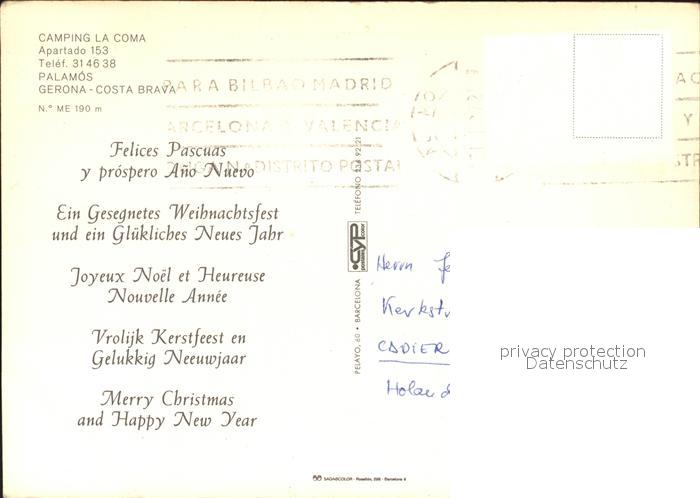 CAMPING LA COMA
Apartado 153
Teléf. 31 46 38
PALAMÓS
GERONA - COSTA BRAVA
N.° ME 190 m
PARA BILBAO MADRID
BARCELONA Y VALENCIA
PONGAN Nº DISTRITO POSTAL
Felices Pascuas
y próspero Año Nuevo
Ein Gesegnetes Weihnachtsfest
und ein Glükliches Neues Jahr
Joyeux Noël et Heureuse
Nouvelle Année
Vrolijk Kerstfeest en
Gelukkig Neeuwjaar
Merry Christmas
and Happy New Year
PELAYO, 60 • BARCELONA CYP TELÉFONO 234 92 21
Herrn
CADIER
Holand
privacy protection
Datenschutz
SADAGCOLOR - Rosellón, 298 - Barcelona